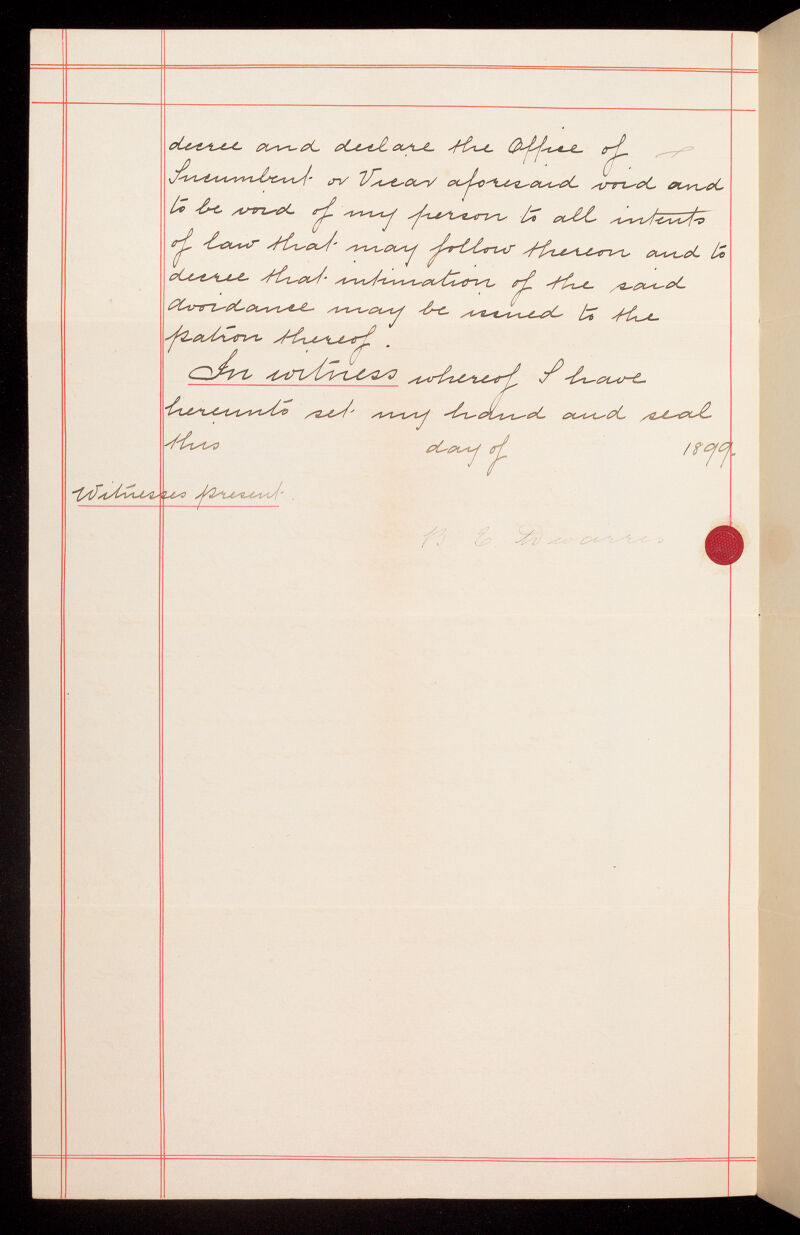 decree and declare the Office of
Incumbent or Vicar aforesaid void and
to be void of my person to all intents
of law that may follow thereon and to
decree that intimation of the said
avoidance may be issued to the
patron thereof.
In witness whereof I have
hereunto set my hand and seal
this day of 1899.
Witnesses present.
B E Dwarris